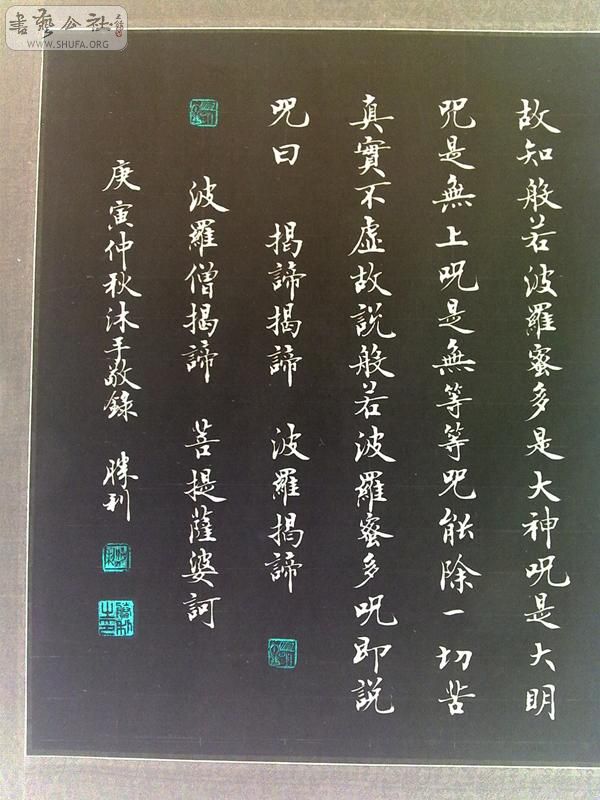 書藝公社
WWW.SHUFA.ORG
故知般若波羅蜜多是大神咒是大明
咒是無上咒是無等等咒能除一切苦
真實不虛故說般若波羅蜜多咒即說
咒曰 揭諦揭諦 波羅揭諦
波羅僧揭諦 菩提薩婆訶
庚寅仲秋沐手敬錄 勝利